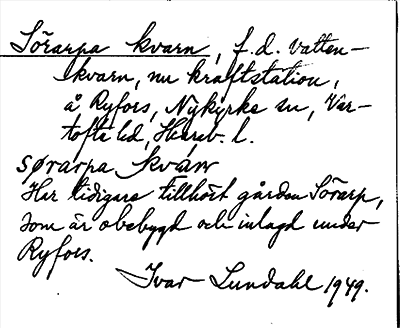 Sörarpa kvarn, f. d. vatten-
kvarn, nu kraftstation,
å Ryfors, Nykyrke sn, Var-
tofta hd, Skarab. l.
sørarpa kvàn
Har tidigare tillhört gården Sörarp,
som är obebygd och inlagd under
Ryfors.
Ivar Lundahl 1949.